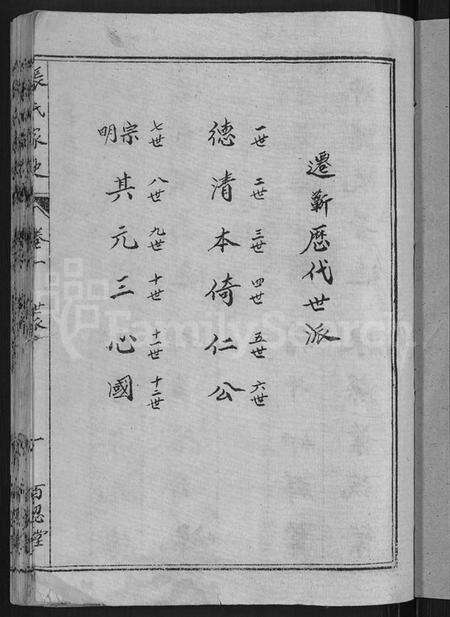 遷蘄歷代世派
一世 二世 三世 四世 五世 六世
德清本倚仁公
七世 八世 九世 十世 十一世 十二世
宗明其元三心國
張氏家史 卷一 一 百忍堂
FamilySearch